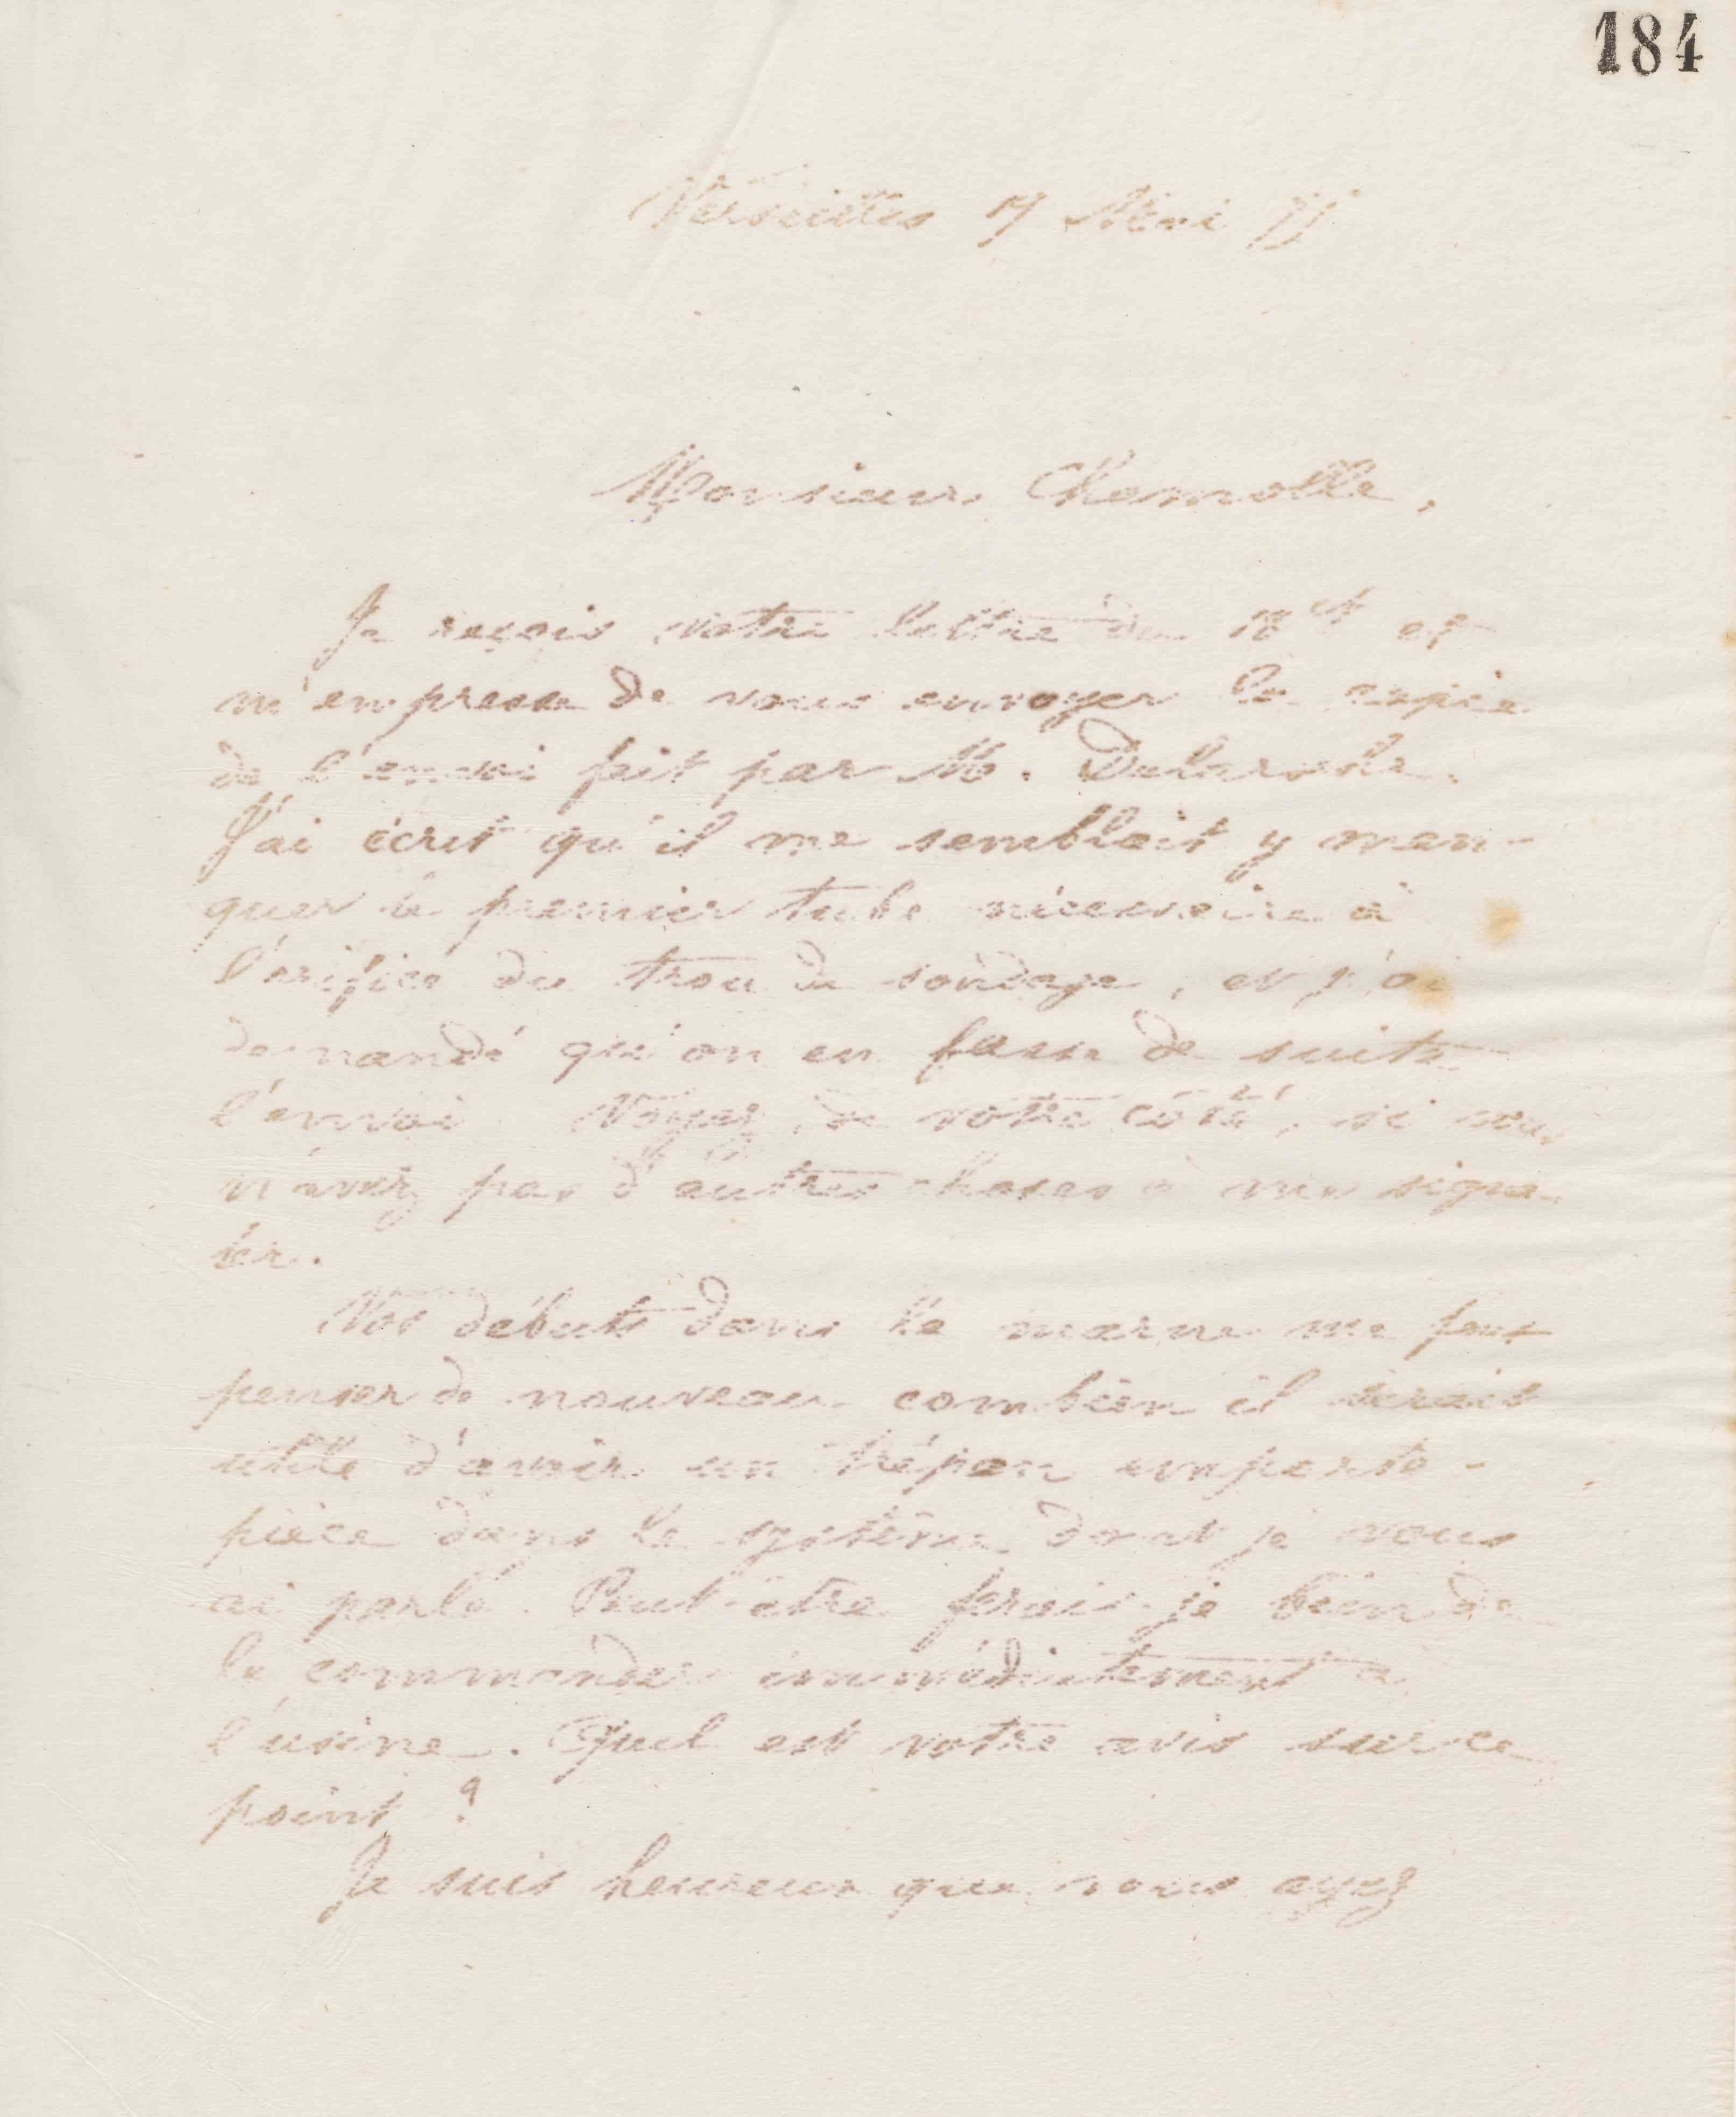 184
Versailles 17 Mai 75
Monsieur Chemolle,
Je reçois votre lettre du 16 ct et
m'empresse de vous envoyer la copie
de l'envoi fait par M.
J'ai écrit qu'il me semblait y man-
quer le premier tube nécessaire à
l'orifice du trou de sondage, et j'ai
demandé qu'on en fasse de suite
l'envoi. Voyez, de votre côté, si vous
n'avez pas d'autres choses à me signa-
ler.
Vos débuts dans la marne me font
penser de nouveau combien il serait
utile d'avoir un trépan emporte-
pièce dans le système dont je vous
ai parlé. Peut-être ferais-je bien de
le commander immédiatement à
l'usine. Quel est votre avis sur ce
point ?
Je suis heureux que vous ayez